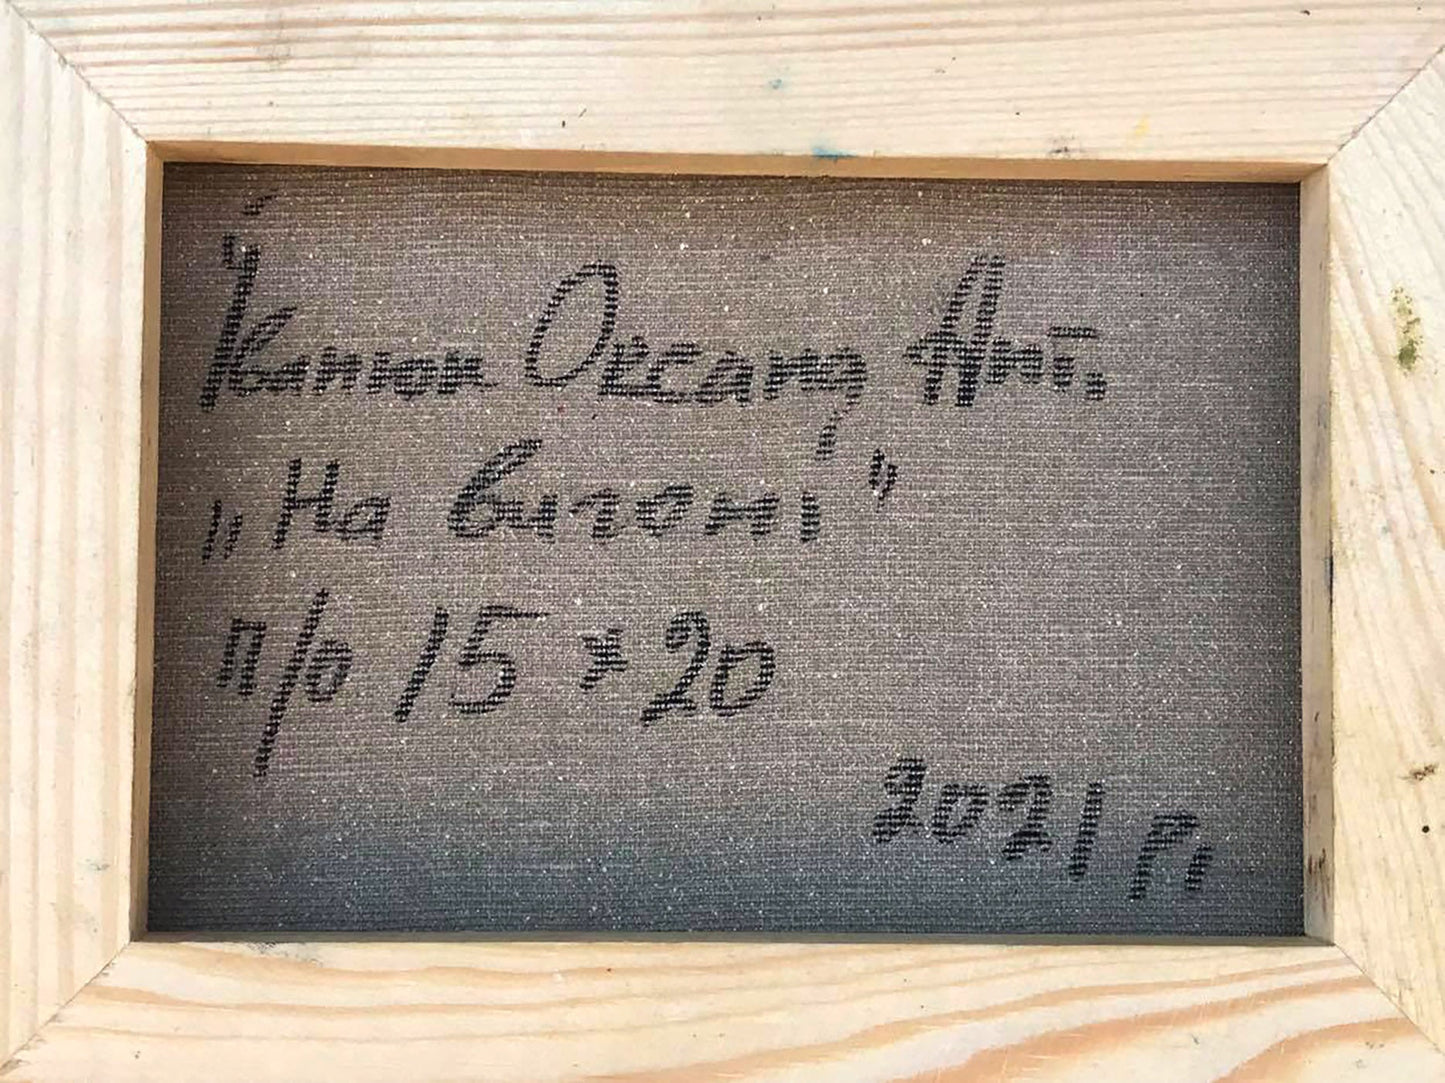 Іванюк Оксана Ант.
„На вигоні"
п/о 15 * 20
2021 р.